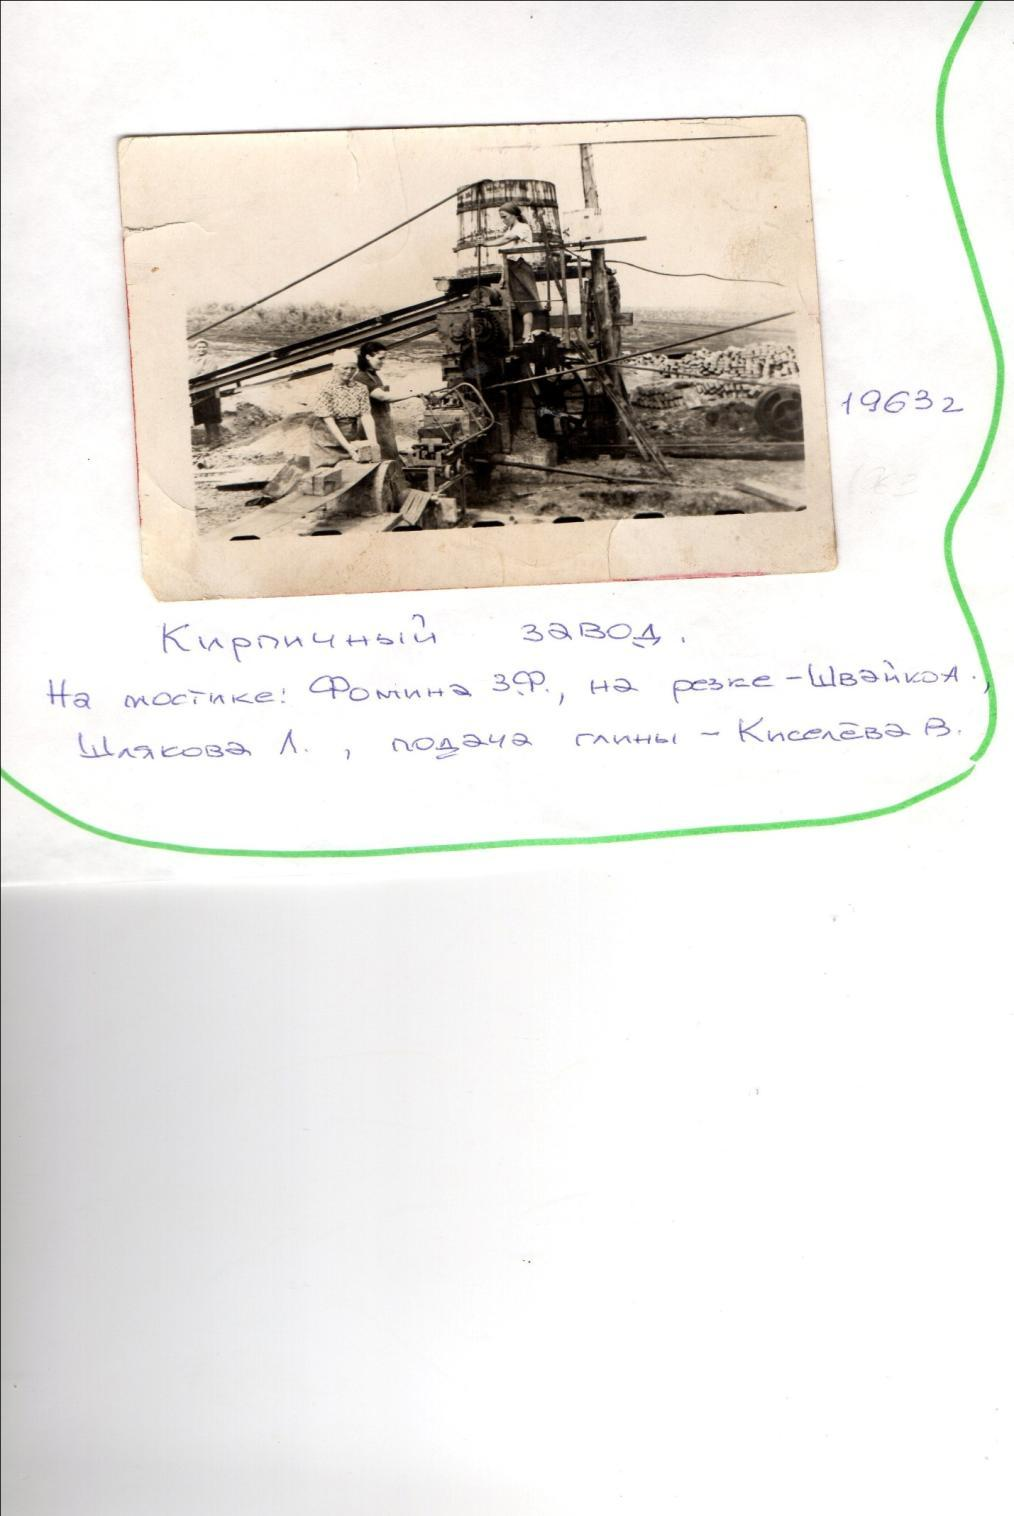 1963г
Кирпичный завод.
На мостике: Фомина З.Ф., на резке - Швайко А.,
Шлякова Л., подача глины - Киселёва В.